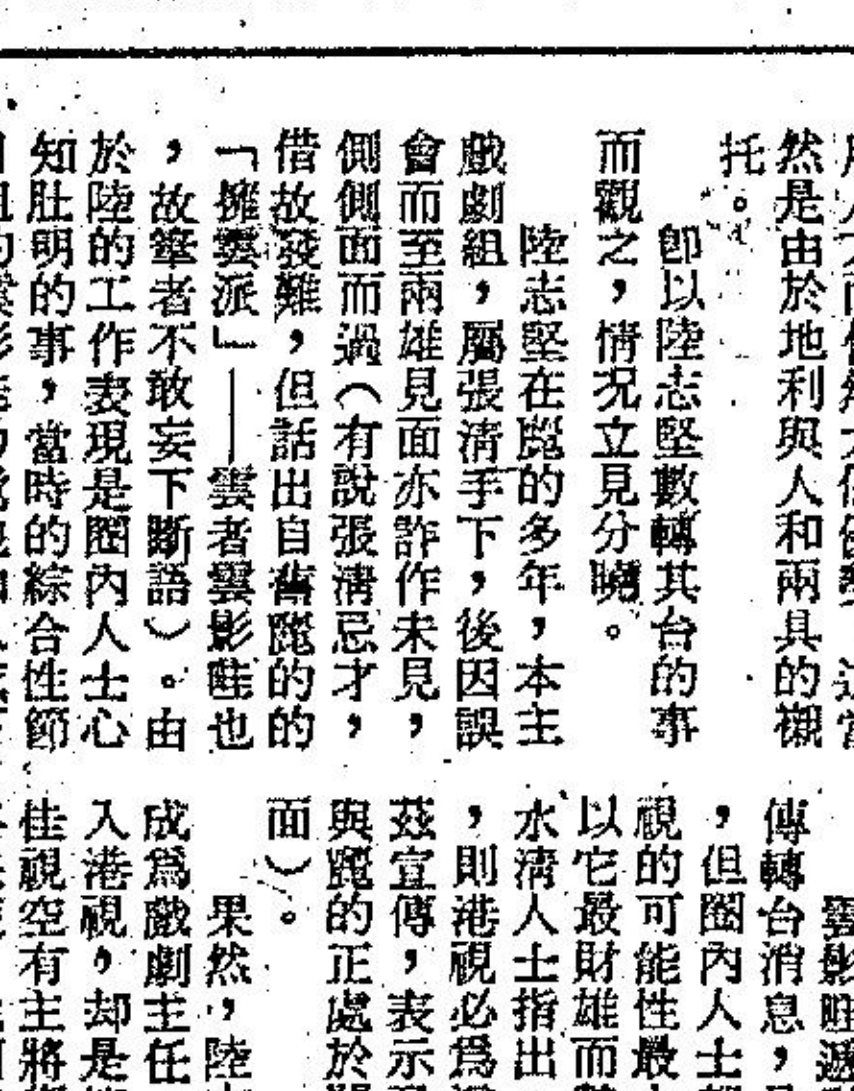 然是由於地利與人和兩具的襯
托。
即以陸志堅數轉其台的事
而觀之，情況立見分曉。
陸志堅在麗的多年，本主
戲劇組，屬張清手下，後因誤
會而至兩雄見面亦詐作未見，
側側面而過（有說張清忌才，
借故發難，但話出自舊麗的的
「擁雲派」——雲者雲影畦也
，故筆者不敢妄下斷語）。由
於陸的工作表現是圈內人士心
知肚明的事，當時的綜合性節
雲影畦遞
傳轉台消息，
，但圈內人士
視的可能性最
以它最財雄而
水清人士指出
，則港視必爲
茲宣傳，表示
與麗的正處於
面）。
果然，陸
成爲戲劇主任
入港視，却是
佳視空有主將